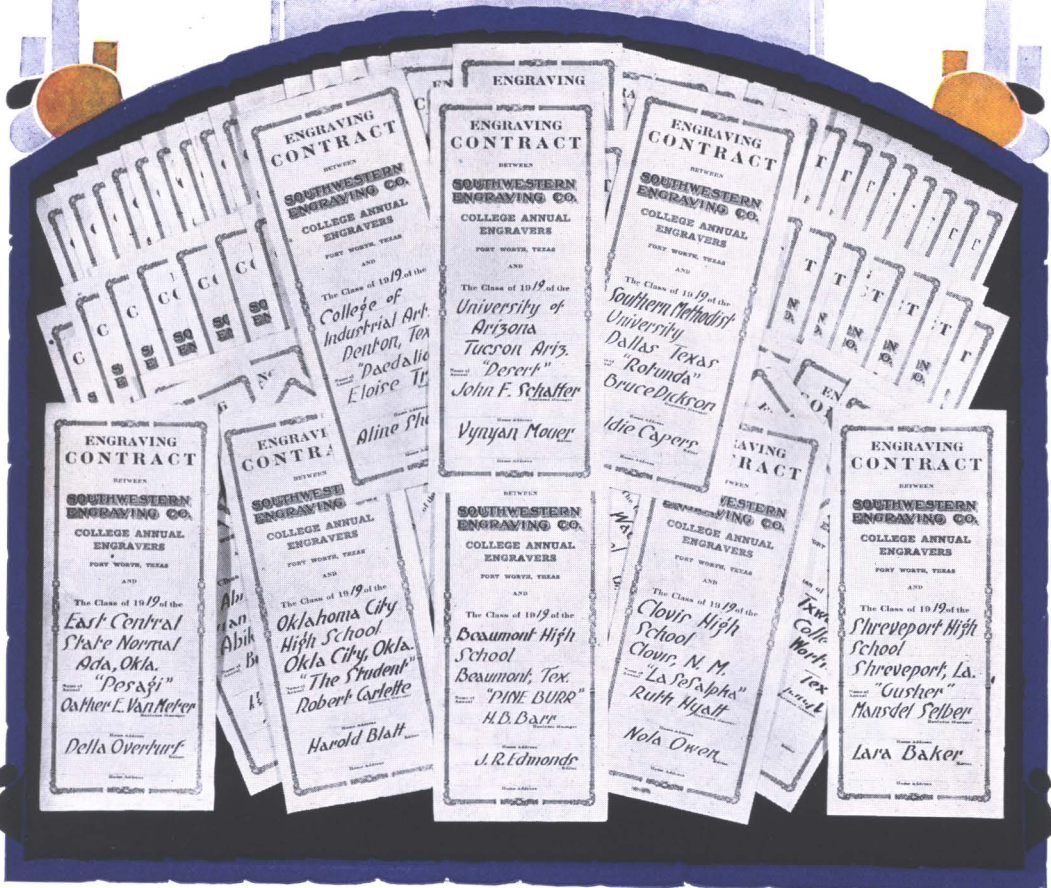 ENGRAVING
ENGRAVING
CONTRACT
BETWEEN
SOUTHWESTERN
ENGRAVING CO.
COLLEGE ANNUAL
ENGRAVERS
FORT WORTH, TEXAS
AND
The Class of 1919 of the
College of
Industrial Art
Denton, Tex
"Daedalia
Name of Annual
Eloise Tr
Home Address
Aline
Home
ENGRAVING
CONTRACT
BETWEEN
SOUTHWESTERN
ENGRAVING CO.
COLLEGE ANNUAL
ENGRAVERS
FORT WORTH, TEXAS
AND
The Class of 1919 of the
University of
Arizona
Tucson Ariz.
"Desert"
Name of Annual
John F. Schaffer
Business Manager
Home Address
Vynyan Mouer
Editor
Home Address
ENGRAVING
CONTRACT
BETWEEN
SOUTHWESTERN
ENGRAVING CO.
COLLEGE ANNUAL
ENGRAVERS
FORT WORTH, TEXAS
AND
The Class of 1919 of the
Southern Methodist
University
Dallas Texas
"Rotunda"
Bruce Dickson
Business Manager
Home Address
Idie Capers
Editor
Home Address
ENGRAVING
CONTRACT
BETWEEN
SOUTHWESTERN
ENGRAVING CO.
COLLEGE ANNUAL
ENGRAVERS
FORT WORTH, TEXAS
AND
The Class of 1919 of the
East Central
State Normal
Ada, Okla.
"Pesagi"
Name of Annual
Oather E. Van Meter
Business Manager
Home Address
Della Overturf
Editor
Home Address
ENGRAVI
CONTRA
BETWEEN
SOUTHWESTE
ENGRAVING CO.
COLLEGE ANNUAL
ENGRAVERS
FORT WORTH, TEXAS
AND
The Class of 1919 of the
Oklahoma City
High School
Okla City, Okla.
"The Student"
Name of Annual
Robert Carlette
Business Manager
Home Address
Harold Blatt
Editor
Home Address
BETWEEN
SOUTHWESTERN
ENGRAVING CO.
COLLEGE ANNUAL
ENGRAVERS
FORT WORTH, TEXAS
AND
The Class of 1919 of the
Beaumont High
School
Beaumont, Tex.
"PINE BURR"
Name of Annual
H.B. Barr
Business Manager
Home Address
J.R. Edmonds
Editor
Home Address
AVING
RACT
WEEN
WESTERN
VING CO.
COLLEGE ANNUAL
ENGRAVERS
FORT WORTH, TEXAS
AND
The Class of 1919 of the
Clovis High
School
Clovis, N. M.
"La Sesalpha"
Name of Annual
Ruth Hyatt
Business Manager
Home Address
Nola Owen
Editor
Home Address
ENGRAVING
CONTRACT
BETWEEN
SOUTHWESTERN
ENGRAVING CO.
COLLEGE ANNUAL
ENGRAVERS
FORT WORTH, TEXAS
AND
The Class of 1919 of the
Shreveport High
School
Shreveport, La.
"Gusher"
Name of Annual
Mansdel Selber
Business Manager
Home Address
Lara Baker
Editor
Home Address